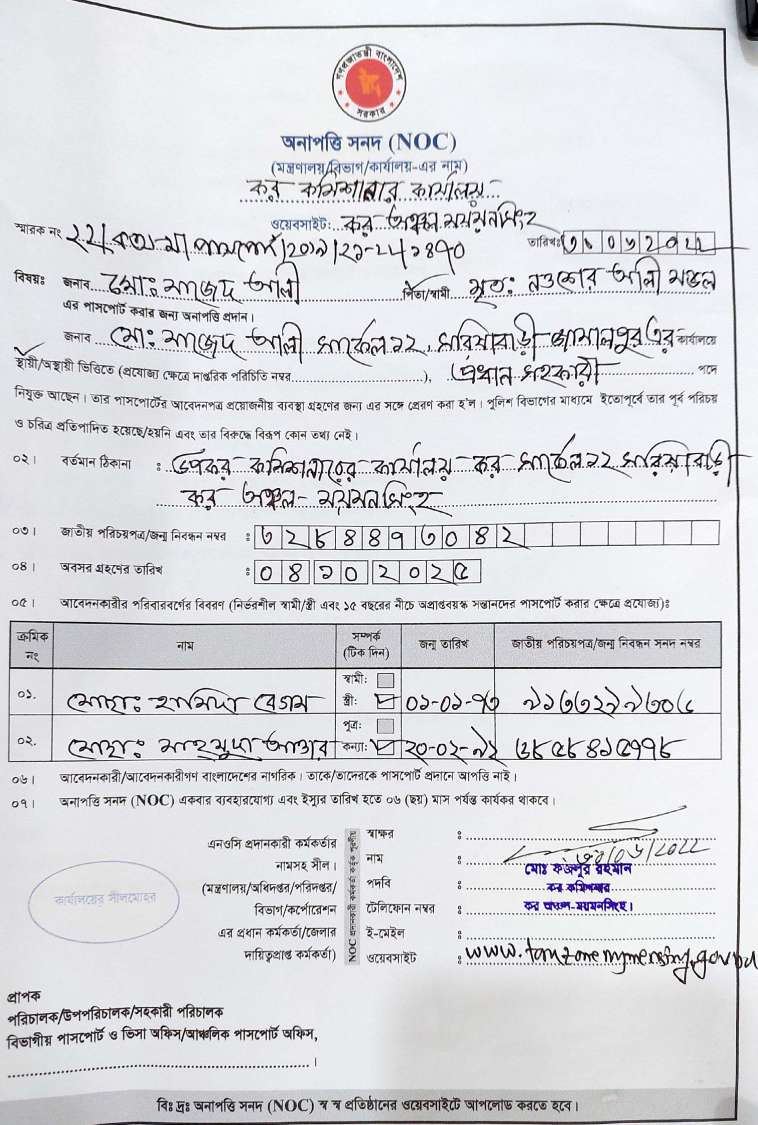 গণপ্রজাতন্ত্রী বাংলাদেশ
সরকার
অনাপত্তি সনদ (NOC)
(মন্ত্রণালয়/বিভাগ/কার্যালয়-এর নাম)
কর কমিশনার কার্যালয়
ওয়েবসাইট: কর অঞ্চল ময়মনসিংহ
স্মারক নং
তারিখঃ
বিষয়ঃ জনাব মোঃ সাজেদ আলী পিতা/স্বামী মৃতঃ নওশের আলী মন্ডল
এর পাসপোর্ট করার জন্য অনাপত্তি প্রদান।
জনাব মোঃ সাজেদ আলী সার্কেল ১২, সরিষাবাড়ী জামালপুর এর কার্যালয়ে
স্থায়ী/অস্থায়ী ভিত্তিতে (প্রযোজ্য ক্ষেত্রে দাপ্তরিক পরিচিতি নম্বর), প্রধান সহকারী পদে
নিযুক্ত আছেন। তার পাসপোর্টের আবেদনপত্র প্রয়োজনীয় ব্যবস্থা গ্রহণের জন্য এর সঙ্গে প্রেরণ করা হ'ল। পুলিশ বিভাগের মাধ্যমে ইতোপূর্বে তার পূর্ব পরিচয়
ও চরিত্র প্রতিপাদিত হয়েছে/হয়নি এবং তার বিরুদ্ধে বিরূপ কোন তথ্য নেই।
০২। বর্তমান ঠিকানা : উপকর কমিশনারের কার্যালয় কর সার্কেল ১২ সরিষাবাড়ী
কর অঞ্চল- ময়মনসিংহ
০৩। জাতীয় পরিচয়পত্র/জন্ম নিবন্ধন নম্বর :
০৪। অবসর গ্রহণের তারিখ : ০৪১০২০২৫
০৫। আবেদনকারীর পরিবারবর্গের বিবরণ (নির্ভরশীল স্বামী/স্ত্রী এবং ১৫ বছরের নীচে অপ্রাপ্তবয়স্ক সন্তানদের পাসপোর্ট করার ক্ষেত্রে প্রযোজ্য)ঃ
ক্রমিক নং নাম সম্পর্ক (টিক দিন) জন্ম তারিখ জাতীয় পরিচয়পত্র/জন্ম নিবন্ধন সনদ নম্বর
স্বামী:
০১. মোছাঃ হামিদা বেগম স্ত্রী: ০১-০১-৭৩
পুত্র:
০২. মোছাঃ মাহমুদা আক্তার কন্যা: ২০-০২-৯২
০৬। আবেদনকারী/আবেদনকারীগণ বাংলাদেশের নাগরিক। তাকে/তাদেরকে পাসপোর্ট প্রদানে আপত্তি নাই।
০৭। অনাপত্তি সনদ (NOC) একবার ব্যবহারযোগ্য এবং ইস্যুর তারিখ হতে ০৬ (ছয়) মাস পর্যন্ত কার্যকর থাকবে।
এনওসি প্রদানকারী কর্মকর্তার
নামসহ সীল।
(মন্ত্রণালয়/অধিদপ্তর/পরিদপ্তর/
বিভাগ/কর্পোরেশন
এর প্রধান কর্মকর্তা/জেলার
দায়িত্বপ্রাপ্ত কর্মকর্তা)
কার্যালয়ের সীলমোহর
NOC প্রদানকারী কর্মকর্তা কর্তৃক পূরণীয়
স্বাক্ষর :
নাম : মোঃ ফজলুর রহমান
পদবি : কর কমিশনার
টেলিফোন নম্বর : কর অঞ্চল-ময়মনসিংহ।
ই-মেইল :
ওয়েবসাইট : www.taxzonemymensing.gov.bd
প্রাপক
পরিচালক/উপপরিচালক/সহকারী পরিচালক
বিভাগীয় পাসপোর্ট ও ভিসা অফিস/আঞ্চলিক পাসপোর্ট অফিস,
বিঃ দ্রঃ অনাপত্তি সনদ (NOC) স্ব স্ব প্রতিষ্ঠানের ওয়েবসাইটে আপলোড করতে হবে।